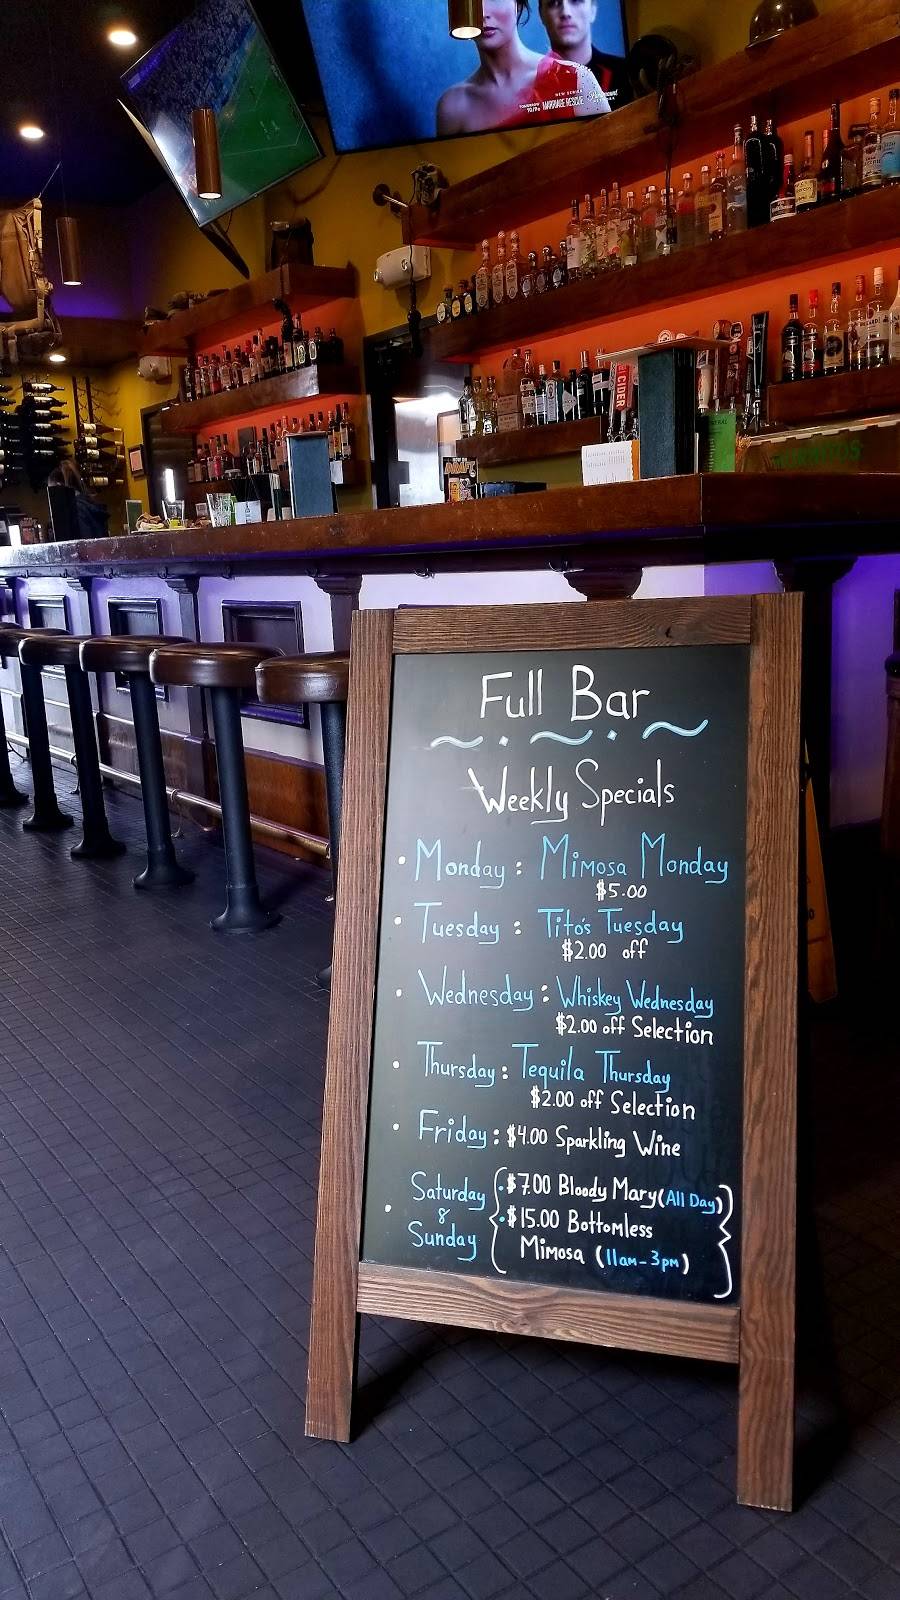 NEW SERIES
TOMORROW
10/9c
MARRIAGE RESCUE
Paramount
NETWORK
CIDER
DRAFT
Full Bar
Weekly Specials
• Monday : Mimosa Monday
$5.00
• Tuesday : Tito's Tuesday
$2.00 off
• Wednesday : Whiskey Wednesday
$2.00 off Selection
• Thursday : Tequila Thursday
$2.00 off Selection
• Friday : $4.00 Sparkling Wine
• Saturday
&
Sunday
• $7.00 Bloody Mary (All Day)
• $15.00 Bottomless
Mimosa (11am-3pm)